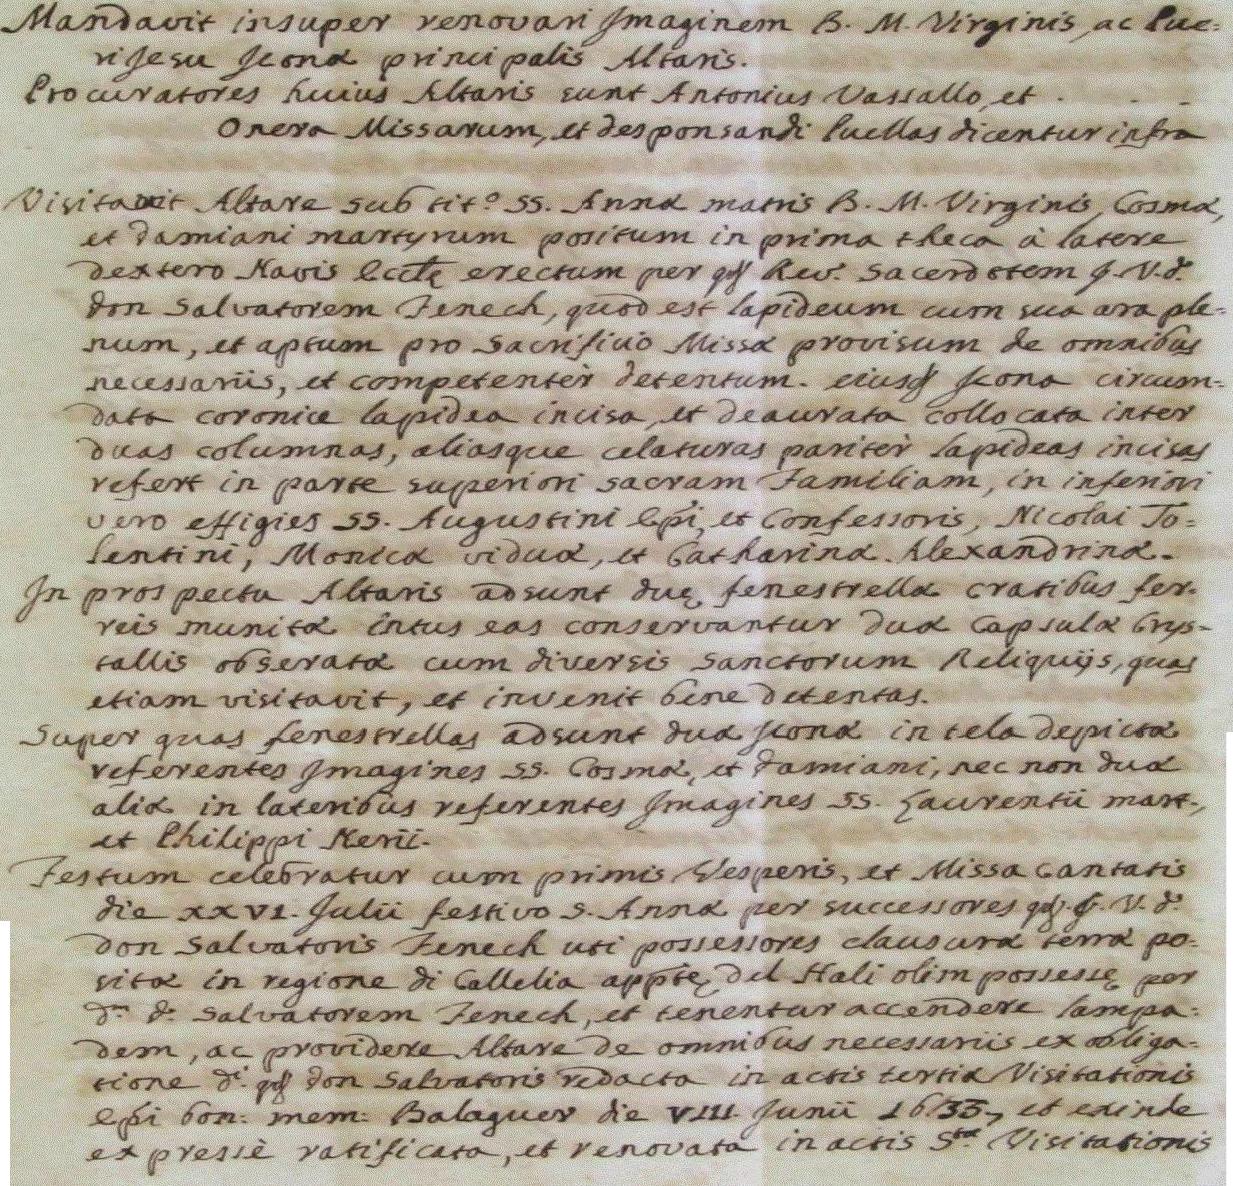 Mandavit insuper renovari Imaginem B. M. Virginis, ac Pue-
ri Jesu Icona principalis Altaris.
Procuratores huius Altaris sunt Antonius Vassallo, et . . -
Onera Missarum, et desponsandi Puellas dicentur infra
Visitavit Altare sub tit.º SS. Annæ matris B. M. Virginis, Cosmæ,
et Damiani martyrum positum in prima theca à latere
dextero Navis Eccłę erectum per qđ Rev. Sacerdotem J. V. D.
Don Salvatorem Fenech, quod est lapideum cum sua ara ple-
num, et aptum pro Sacrificio Missæ provisum de omnibus
necessariis, et competentèr detentum. eiusq Icona circum-
data coronice lapidea incisa, et deaurata collocata inter
duas columnas, aliasque celaturas paritèr lapideas incisas
refert in parte superiori sacram Familiam, in inferiori
vero effigies SS. Augustini Epi, et Confessoris, Nicolai To-
lentini, Monicæ viduæ, et Catharinæ Alexandrinæ.
In prospectu Altaris adsunt duę fenestrellæ cratibus fer-
reis munitæ intus eas conservantur duæ Capsulæ Crys-
tallis obseratæ cum diversis Sanctorum Reliquijs, quas
etiam visitavit, et invenit bene detentas.
Super quas fenestrellas adsunt duæ Iconæ in tela depictæ
referentes Imagines SS. Cosmæ, et Damiani, nec non duæ
aliæ in lateribus referentes Imagines SS. Laurentii mart.,
et Philippi Nerii.
Festum celebratur cum primis Vesperis, et Missa cantatis
die XXVI. Julii festivo S. Annæ per successores qđ. J. V. D.
Don Salvatoris Fenech uti possessores clausuræ terræ po-
sitæ in regione di Callelia apptę del Hali olim possessę per
D.m D. Salvatorem Fenech, et tenentur accendere lampa-
dem, ac providere Altare de omnibus necessariis ex obliga-
tione D.i qđ Don Salvatoris redacta in actis tertiæ Visitationis
Epi bon: mem: Balaguer die VIII Junii 1635, et exinde
expressè ratificata, et renovata in actis 5.tæ Visitationis